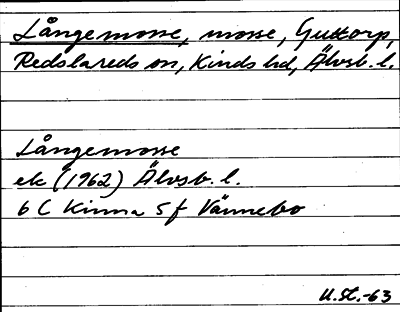 Långemosse, mosse, Guttorp,
Redslareds sn, Kinds hd, Älvsb. l.
Långemosse
ek (1962) Älvsb. l.
6 C Kinna 5 f Vännebo
U.St.-63